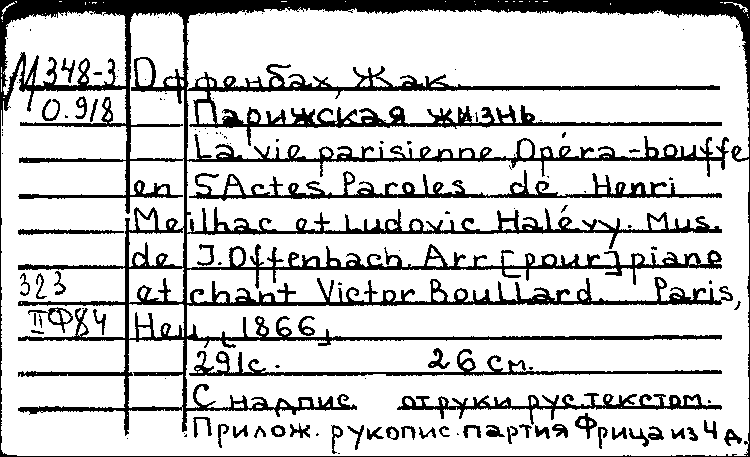 М348-3 Оффенбах, Жак.
О.918 Парижская жизнь
La vie parisienne, Opéra-bouffe
en 5 Actes. Paroles de Henri
Meilhac et Ludovic Halévy. Mus.
de J. Offenbach. Arr [pour] piano
323 et chant Victor Boullard. Paris,
IIФ84 Heu, [1866]
291с. 26 см.
С надпис. от руки рус. текстом.
Прилож. рукопис. партия Фрица из 4 д.